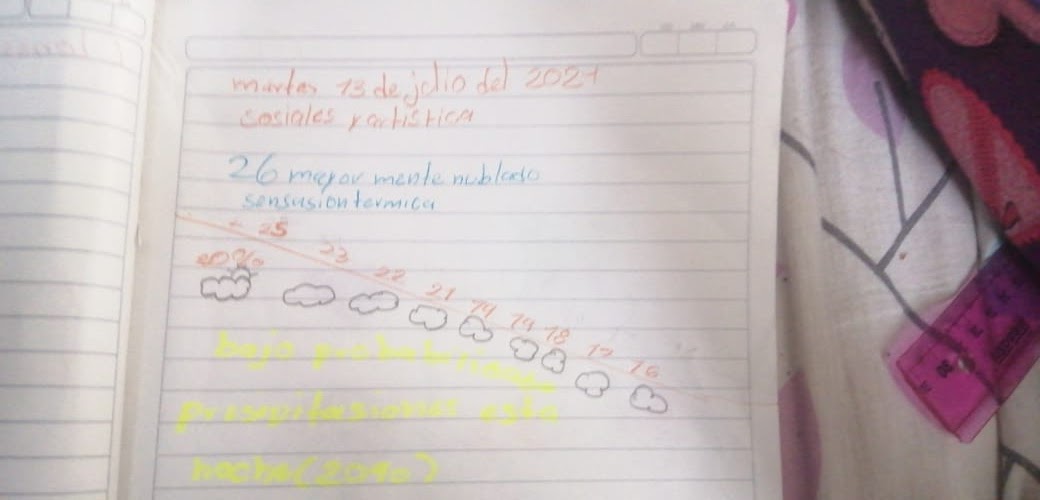 martes 13 de julio del 2021
sosiales y artistica
26 mayor mente nublado
sensusión termica
- 25
23
22
21
19
19
18
17
16
20%
bajo
presepitasiones esta
noche (20%)